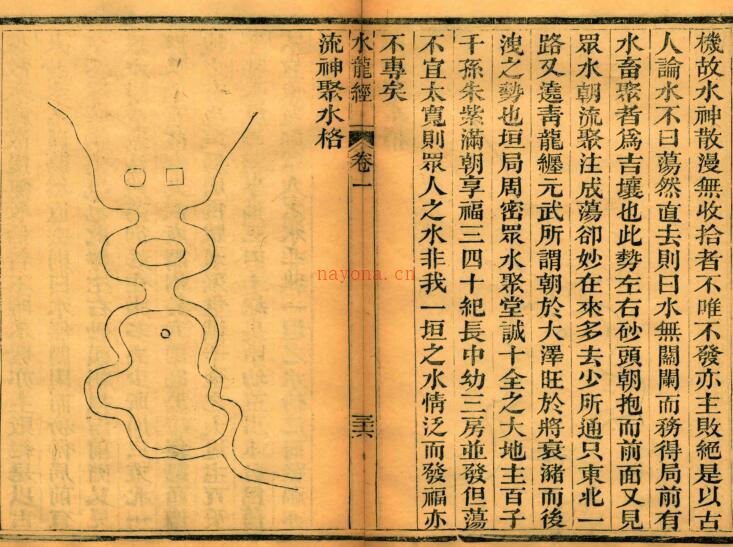 機故水神散漫無收拾者不唯不發亦主敗絕是以古
人論水不曰蕩然直去則曰水無關闌而務得局前有
水畜聚者爲吉壤也此勢左右砂頭朝抱而前面又見
眾水朝流聚注成蕩卻妙在來多去少所通只東北一
路又遶靑龍纏元武所謂朝於大澤旺於將衰瀦而後
洩之勢也垣局周密眾水聚堂誠十全之大地主百子
千孫朱紫滿朝享福三四十紀長中幼三房並發但蕩
不宜太寬則眾人之水非我一垣之水情泛而發福亦
不專矣
水龍經
卷一
三六
流神聚水格
nayona.cn